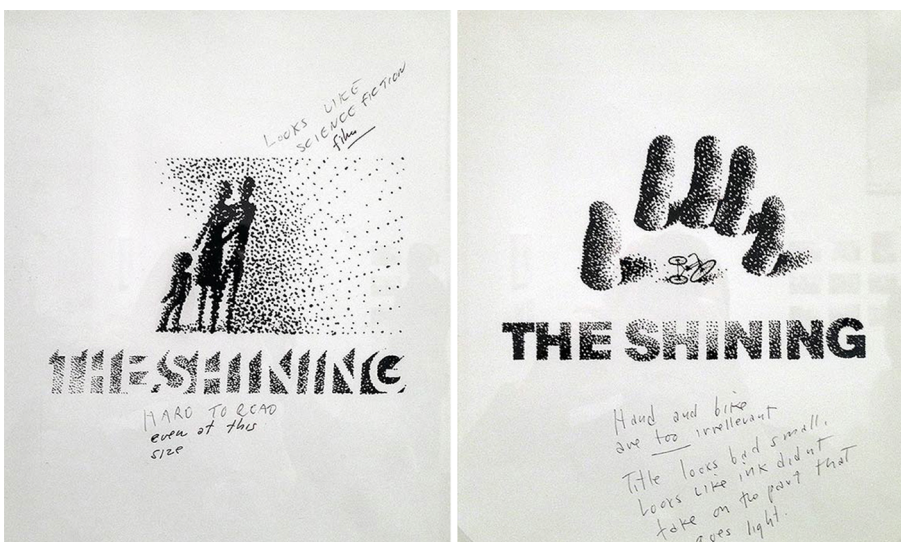 LOOKS LIKE
SCIENCE FICTION
film
THE SHINING
HARD TO READ
even at this
size
THE SHINING
Hand and bike
are too irrellevant
Title looks bad small.
Looks like ink didnt
take on the part that
goes light.